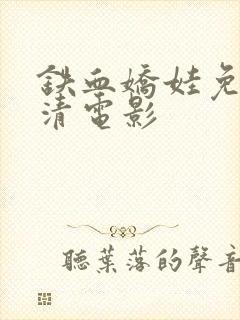 鉄血嬌娃免
清電影
聽葉落的聲音